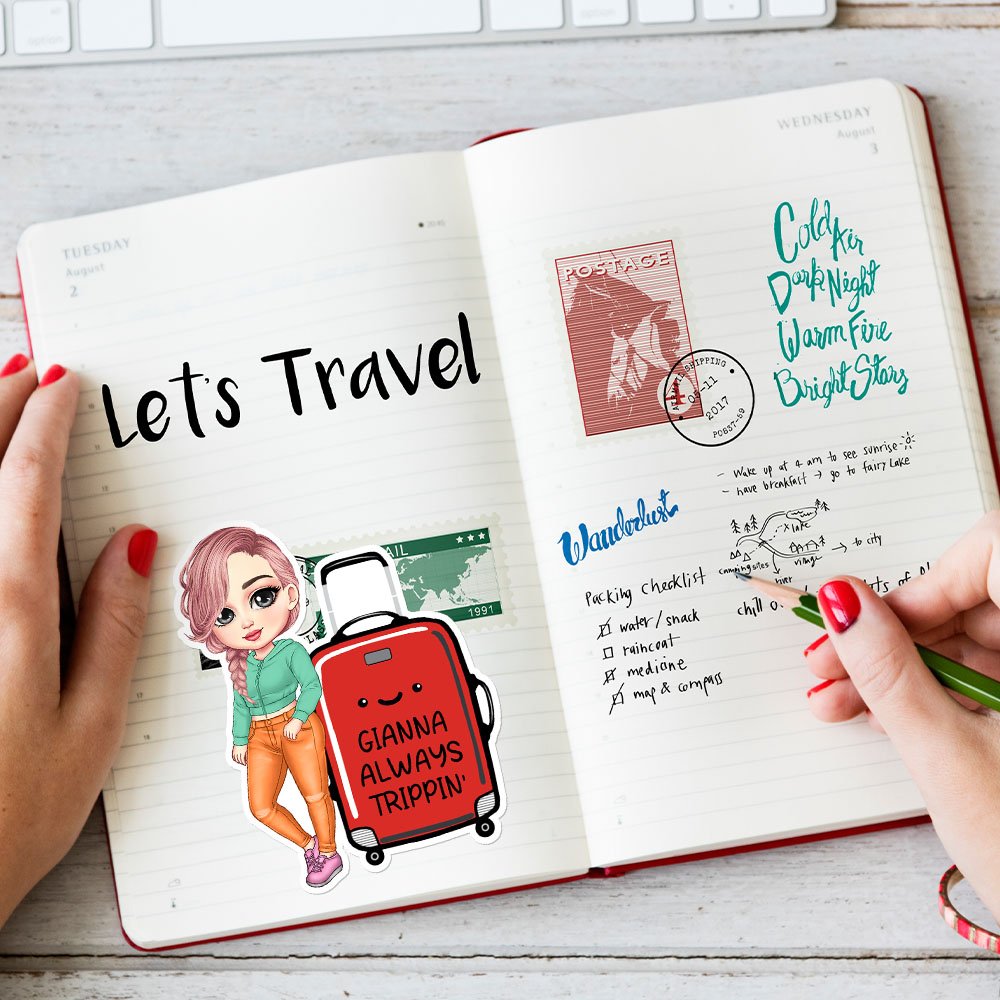 option
option
TUESDAY
August
2
Let's Travel
AIL
1991
GIANNA
ALWAYS
TRIPPIN'
WEDNESDAY
August
3
POSTAGE
SHIPPING
05-11
2017
PO637-59
Cold Air
Dark Night
Warm Fire
Bright Stars
- Wake up at 4 am to see sunrise
- have breakfast → go to fairy Lake
Wanderlust
x lake
camping sites
village
→ to city
river
Packing Checklist
water / snack
raincoat
medicine
map & compass
chill
of